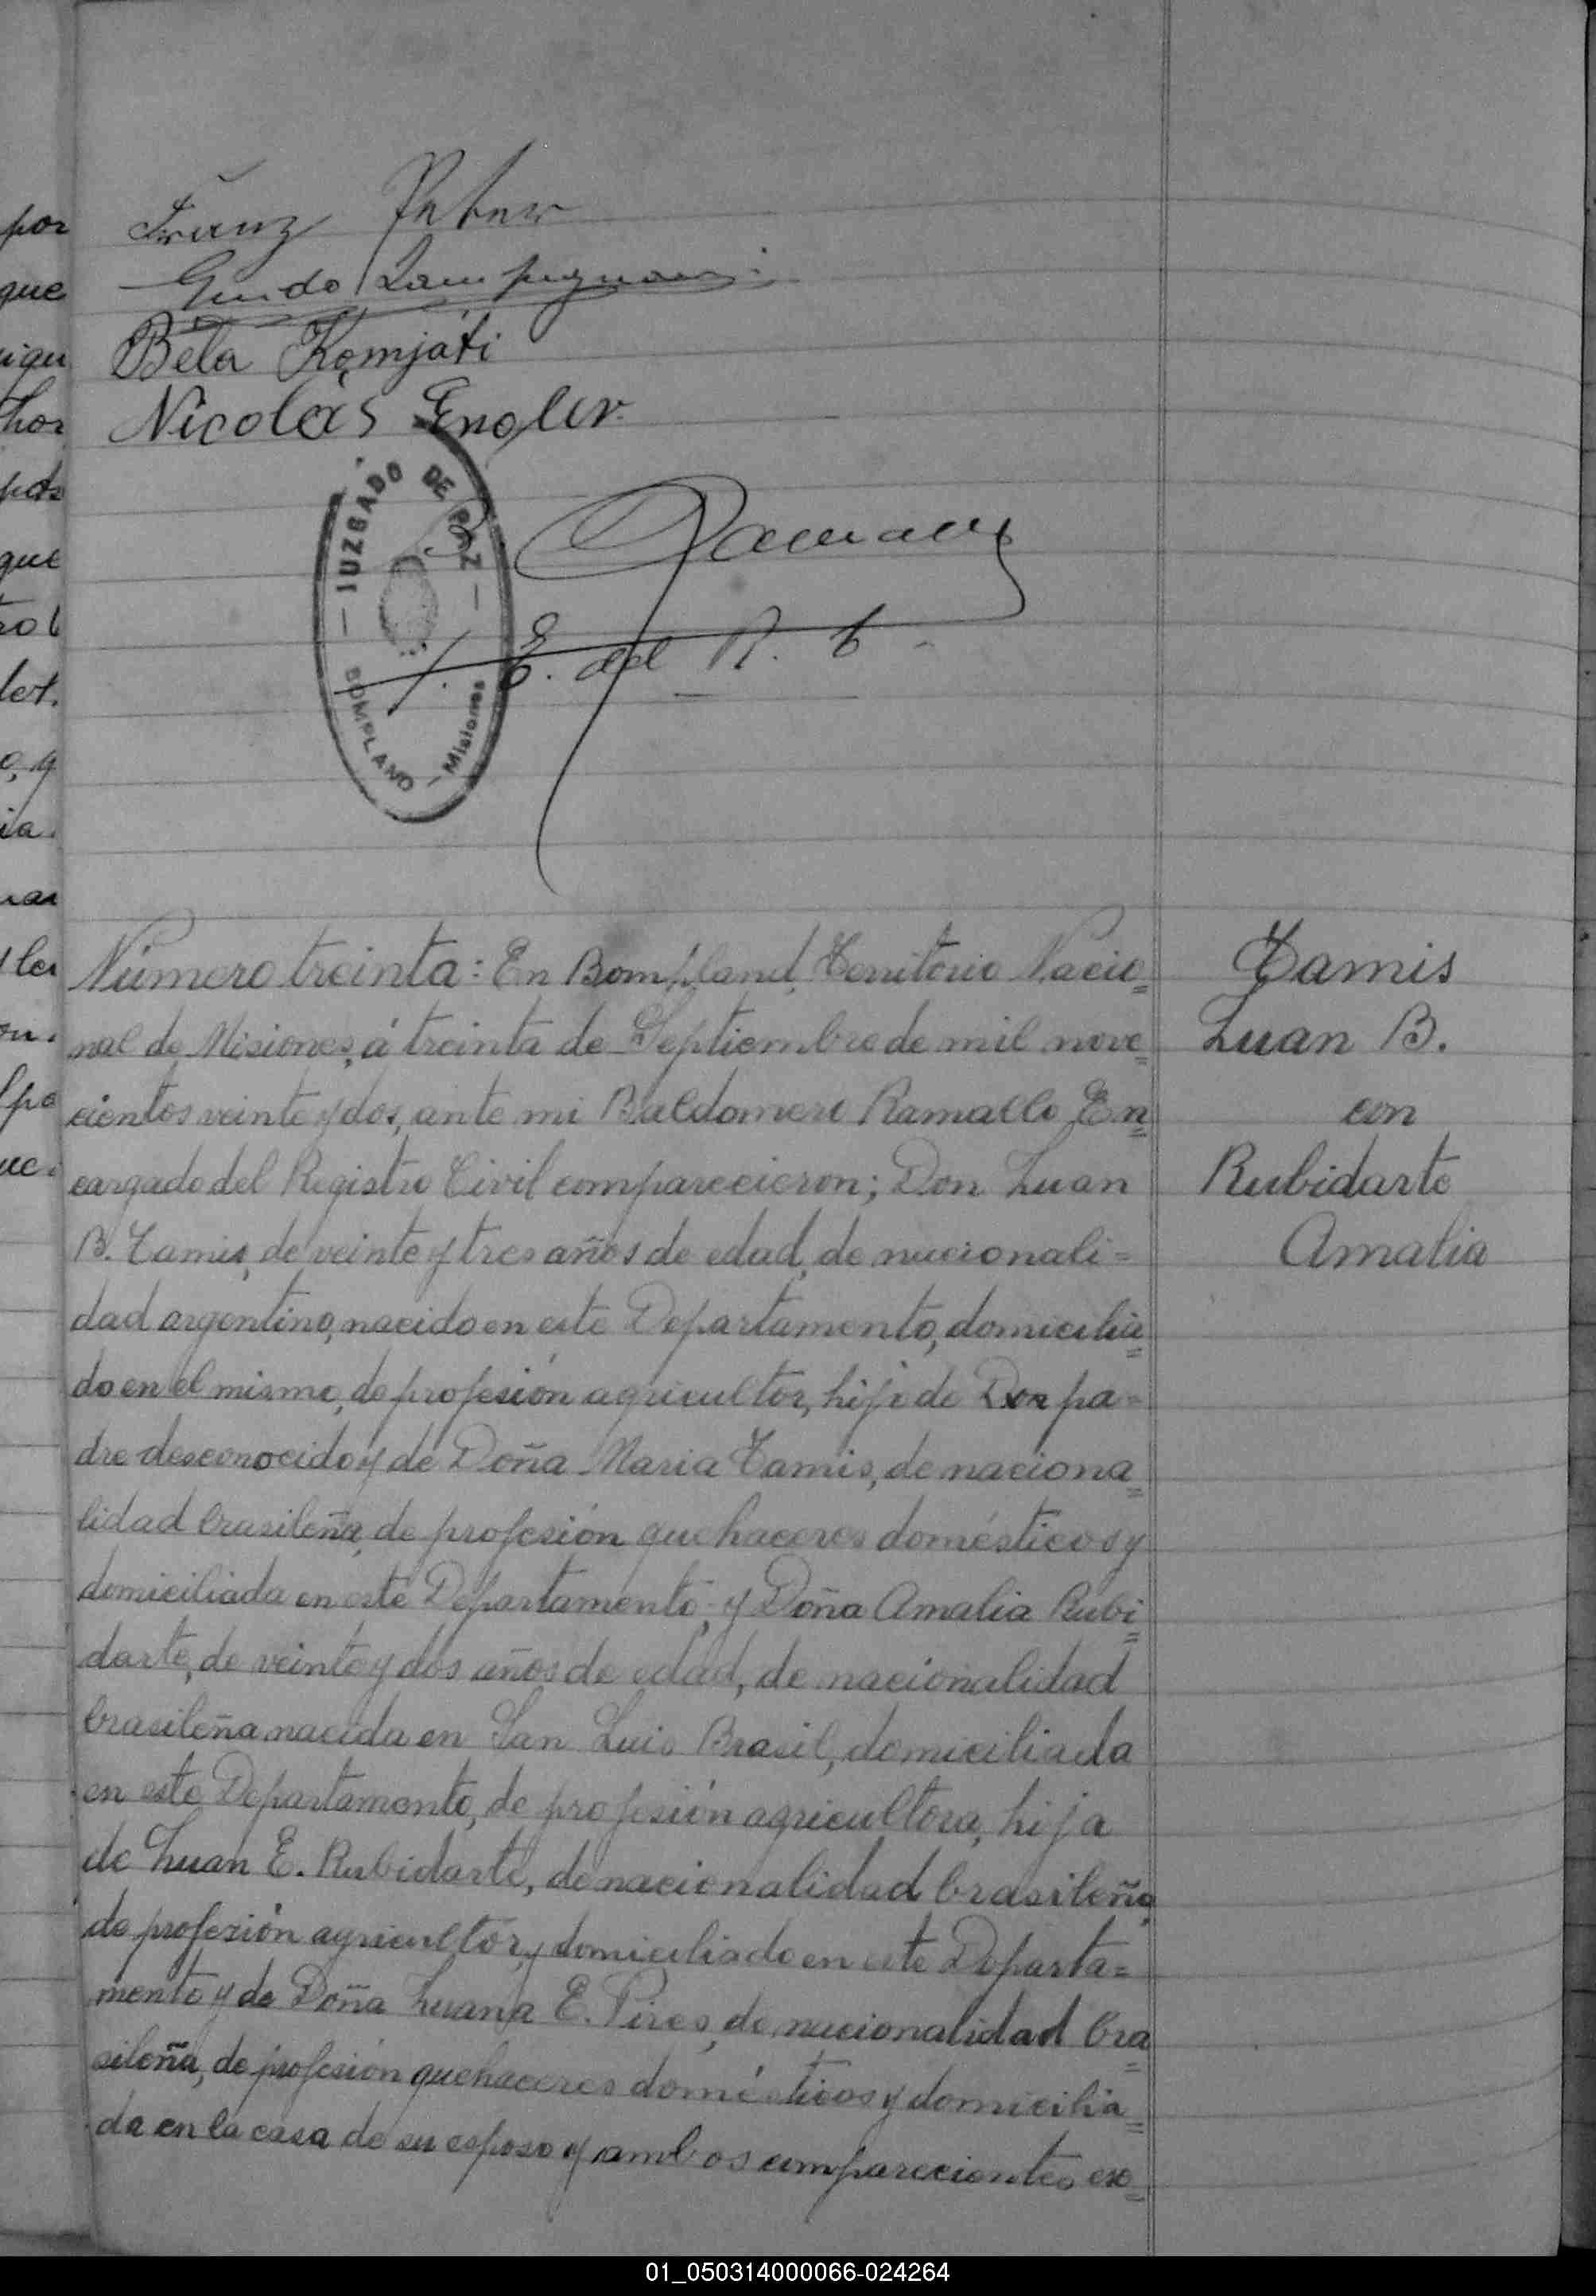 por
que
hor
que
o, y
ia.
Franz
Guido Lampugnani
Béla Komjáti
Nicolás Engler.
JUZGADO DE PAZ
BOMPLAND - Misiones
E. del R. C.
Número treinta: En Bompland, Territorio Nacio=
nal de Misiones, á treinta de Septiembre de mil nove=
cientos veinte y dos, ante mi Baldomero Ramallo En=
cargado del Registro Civil comparecieron; Don Juan
B. Tamis, de veinte y tres años de edad, de nacionali=
dad argentino, nacido en este Departamento, domicilia=
do en el mismo, de profesión agricultor, hijo de Don pa=
dre desconocido y de Doña Maria Tamis, de naciona=
lidad brasileña, de profesión quehaceres domésticos y
domiciliada en este Departamento; y Doña Amalia Rubi=
darte, de veinte y dos años de edad, de nacionalidad
brasileña nacida en San Luis Brasil, domiciliada
en este Departamento, de profesión agricultora, hija
de Juan E. Rubidarte, de nacionalidad brasileña,
de profesión agricultor, y domiciliado en este Departa=
mento y de Doña Juana E. Pires, de nacionalidad bra=
sileña, de profesión quehaceres domésticos y domicilia=
da en la casa de su esposo y ambos comparecientes ex=
Tamis
Juan B.
con
Rubidarte
Amalia
01_050314000066-024264